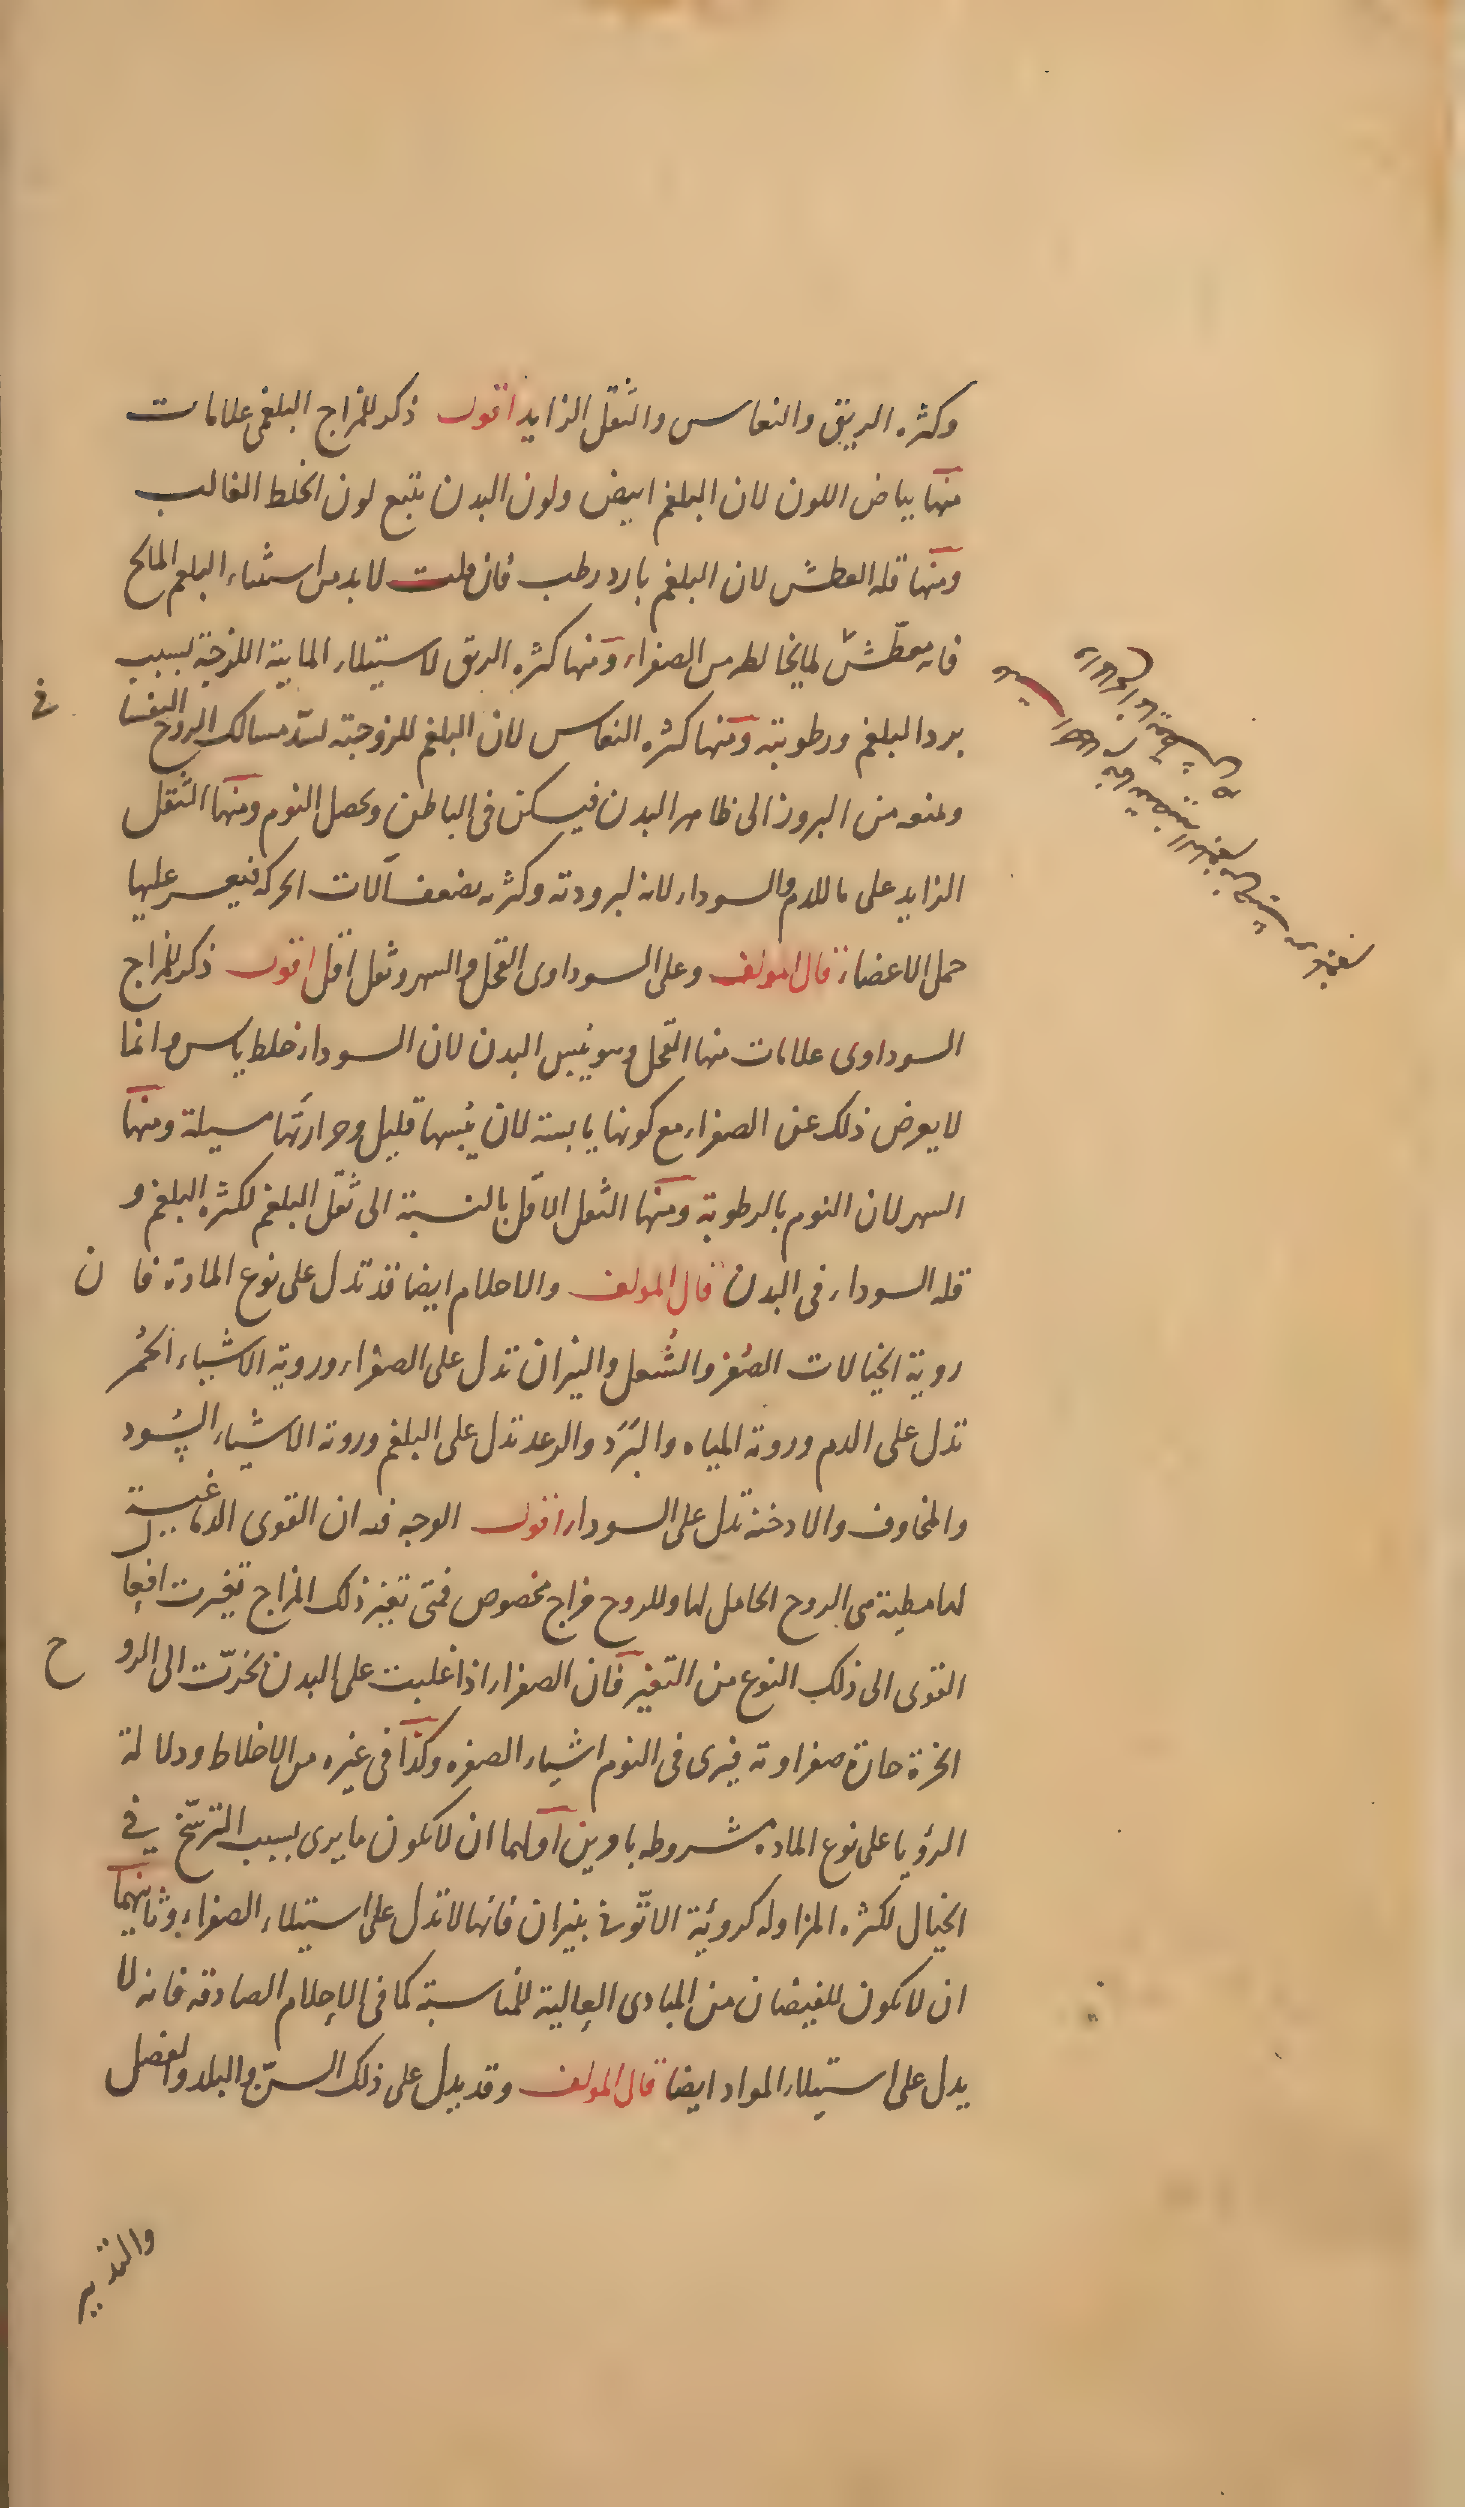 وكثره الريق والنعاس والثقل الزايد اقول ذكر للمزاج البلغمى علامات
منها بياض اللون لان البلغم ابيض ولون البدن يتبع لون الخلط الغالب
ومنها قله العطش لان البلغم بارد رطب فان قلت لا بد من استثناء البلغم المالح
فانه معطّش لما يخالطه من الصفراء ومنها كثره الريق لاستيلاء المايية اللزجة بسبب
برد البلغم ورطوبته ومنها كثره النعاس لان البلغم للزوجته يسدّ مسالك الروح النفسا
فى
ويمنعه من البروز الى ظاهر البدن فيسكن فى الباطن ويحصل النوم ومنها الثقل
الزايد على ما للدم والسوداء لانه لبرودته وكثرته يضعف آلات الحركه فيعسر عليها
حمل الاعضاء قال المولف وعلى السوداوى القحل والسهر وثقل اقل اقول ذكر للمزاج
السوداوى علامات منها القحل وهو يُبس البدن لان السوداء خلط يابس وانما
لا يعرض ذلك عن الصفراء مع كونها يابسة لان يُبسها قليل وحرارتها مسيلة ومنها
السهر لان النوم بالرطوبة ومنها الثقل الاقل بالنسبة الى ثقل البلغم لكثره البلغم و
قله السوداء فى البدن قال المولف والاحلام ايضا قد تدل على نوع المادة فان
روية الخيالات الصُفر والشُعل والنيران تدل على الصفراء وروية الاشياء الحُمر
تدل على الدم وروية المياه والبَرَد والرعد تدل على البلغم وروية الاشياء السُود
والمخاوف والادخنة تدل على السوداء اقول الوجه فيه ان القوى الدماغية
لها مطية هى الروح الحامل لها وللروح مزاج مخصوص فمتى تغير ذلك المزاج تغيرت افعال
القوى الى ذلك النوع من التغير فان الصفراء اذا غلبت على البدن بخرّت الى الروح
ابخرة حارة صفراوية فيرى فى النوم اشياء الصفره وكذا فى غيره من الاخلاط ودلالة
الرؤيا على نوع الماده مشروطه بامرين اولهما ان لا يكون ما يرى بسبب الترسّخ فى
الخيال لكثره المزاوله كروئية الاتّونى بنيران فانها لا تدل على استيلاء الصفراء وثانيهما
ان لا يكون للفيضان من المبادى العالية للمناسبة كما فى الاحلام الصادقه فانه لا
يدل على استيلاء المواد ايضا قال المولف وقد يدل على ذلك السنّ والبلد والفصل
والتدبير